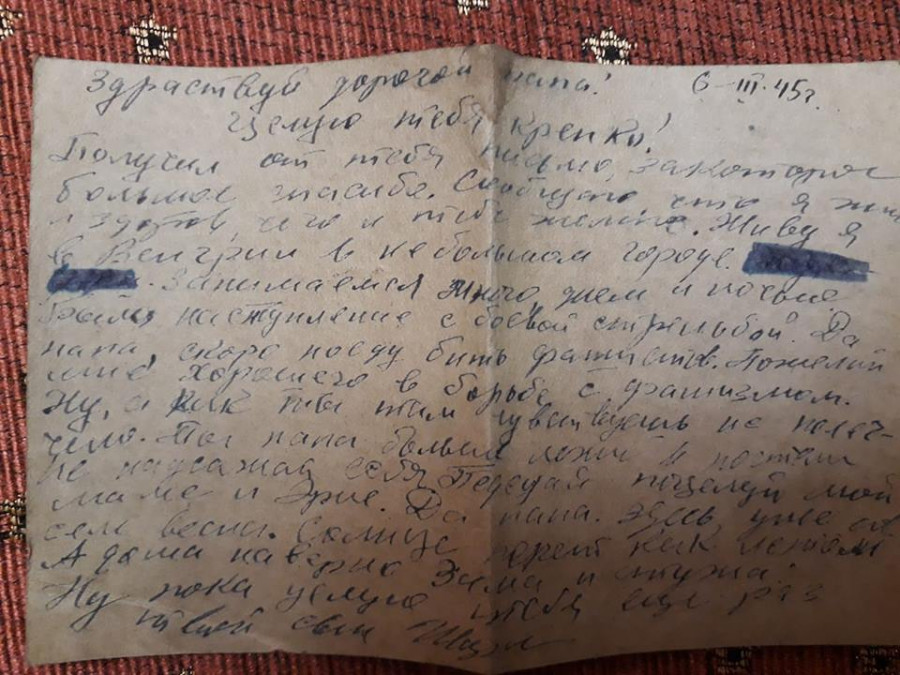 Здраствуй дорогой папа! 6-III-45г.
Целую тебя крепко!
Получил от тебя письмо, за которое
большое спасибо. Сообщаю что я жив
и здоров, чего и тебе желаю. Живу я
в Венгрии в небольшом городе.
Занимаемся много, днем и ночью
Было наступление с боевой стрельбой. Да
папа, скоро поеду бить фашистов. Пожелай
мне хорошего в борьбе с фашизмом.
Ну, а как ты там чувствуешь
Ты папа больше лежи и
не нагружай себя. Передай поцелуй мой
маме и Эре. Да папа. Здесь уже
весна. Солнце греет как летом
А дома наверно Зима и стужа!
Ну пока целую тебя еще раз
твой сын